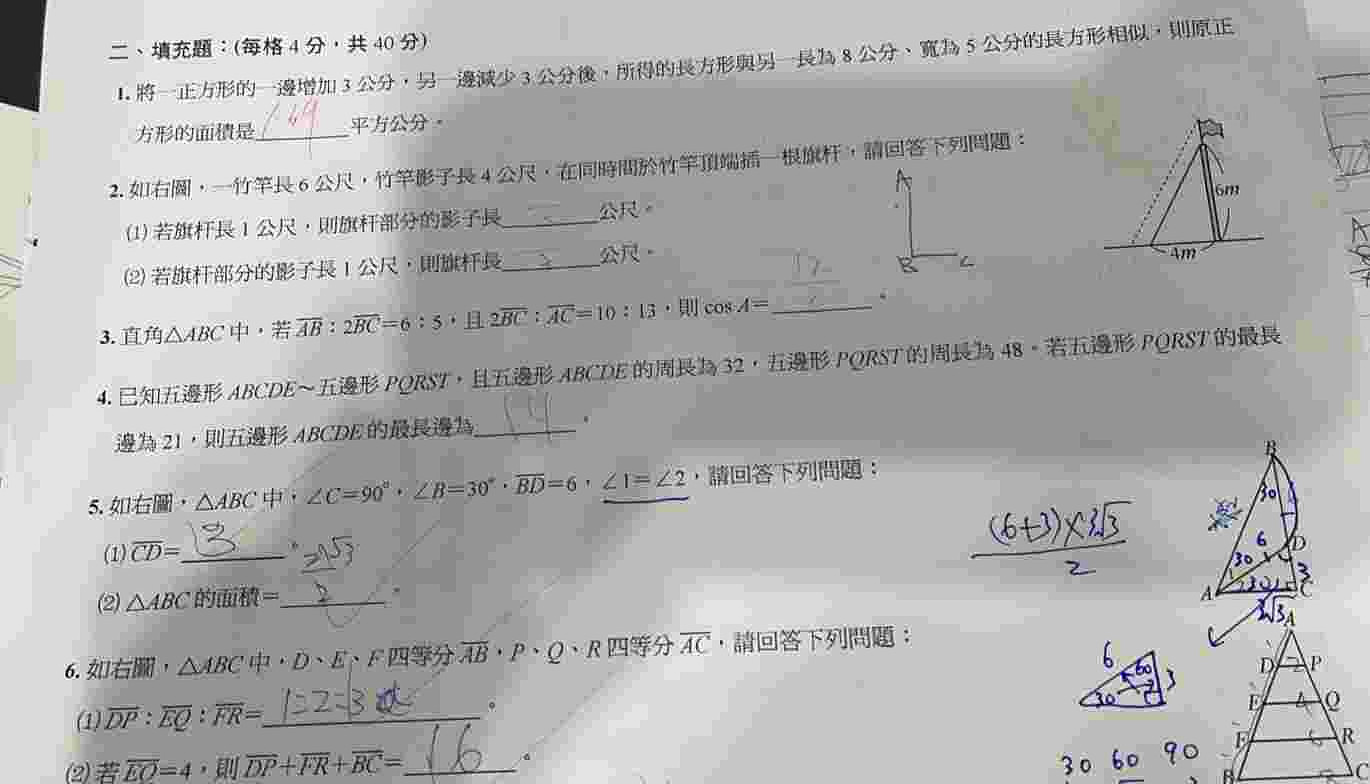 二、填充題：(每格 4 分，共 40 分)
1. 將一正方形的一邊增加 3 公分，另一邊減少 3 公分後，所得的長方形與另一長為 8 公分、寬為 5 公分的長方形相似，則原正
方形的面積是 169 平方公分。
2. 如右圖，一竹竿長 6 公尺，竹竿影子長 4 公尺，在同時間於竹竿頂端插一根旗杆，請回答下列問題：
(1) 若旗杆長 1 公尺，則旗杆部分的影子長 公尺。
(2) 若旗杆部分的影子長 1 公尺，則旗杆長 公尺。
6m
4m
A
B C
3. 直角△ABC 中，若 AB：2BC＝6：5，且 2BC：AC＝10：13，則 cos A＝ 12 。
4. 已知五邊形 ABCDE～五邊形 PQRST，且五邊形 ABCDE 的周長為 32，五邊形 PQRST 的周長為 48。若五邊形 PQRST 的最長
邊為 21，則五邊形 ABCDE 的最長邊為 14 。
5. 如右圖，△ABC 中，∠C＝90°，∠B＝30°，BD＝6，∠1＝∠2，請回答下列問題：
(1) CD＝ 3 。
(2) △ABC 的面積＝ 。
(6+3)×3√3
2
B
30
6 D
30 3
A C
3√3
6. 如右圖，△ABC 中，D、E、F 四等分 AB，P、Q、R 四等分 AC，請回答下列問題：
(1) DP：EQ：FR＝ 1=2=3 。
(2) 若 EQ＝4，則 DP＋FR＋BC＝ 16 。
6 60 3
30
30 60 90
A
D P
E Q
F R
B C